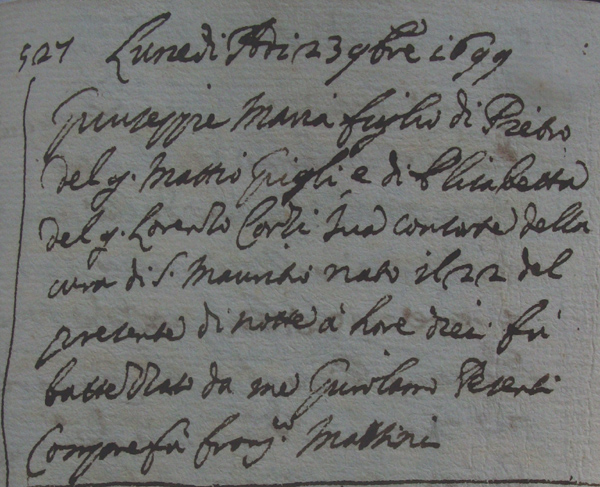 527 Lunedi Adi 23 9bre 1699
Giuseppie Maria figlio di Pietro
del q. Mattio Gigli e di Elisabetta
del q. Lorenzo Corti sua consorte della
cura di S. Mauritio nato il 22 del
presente di notte à hore dieci fù
battezzato da me Girolamo
Compare fù Mattini